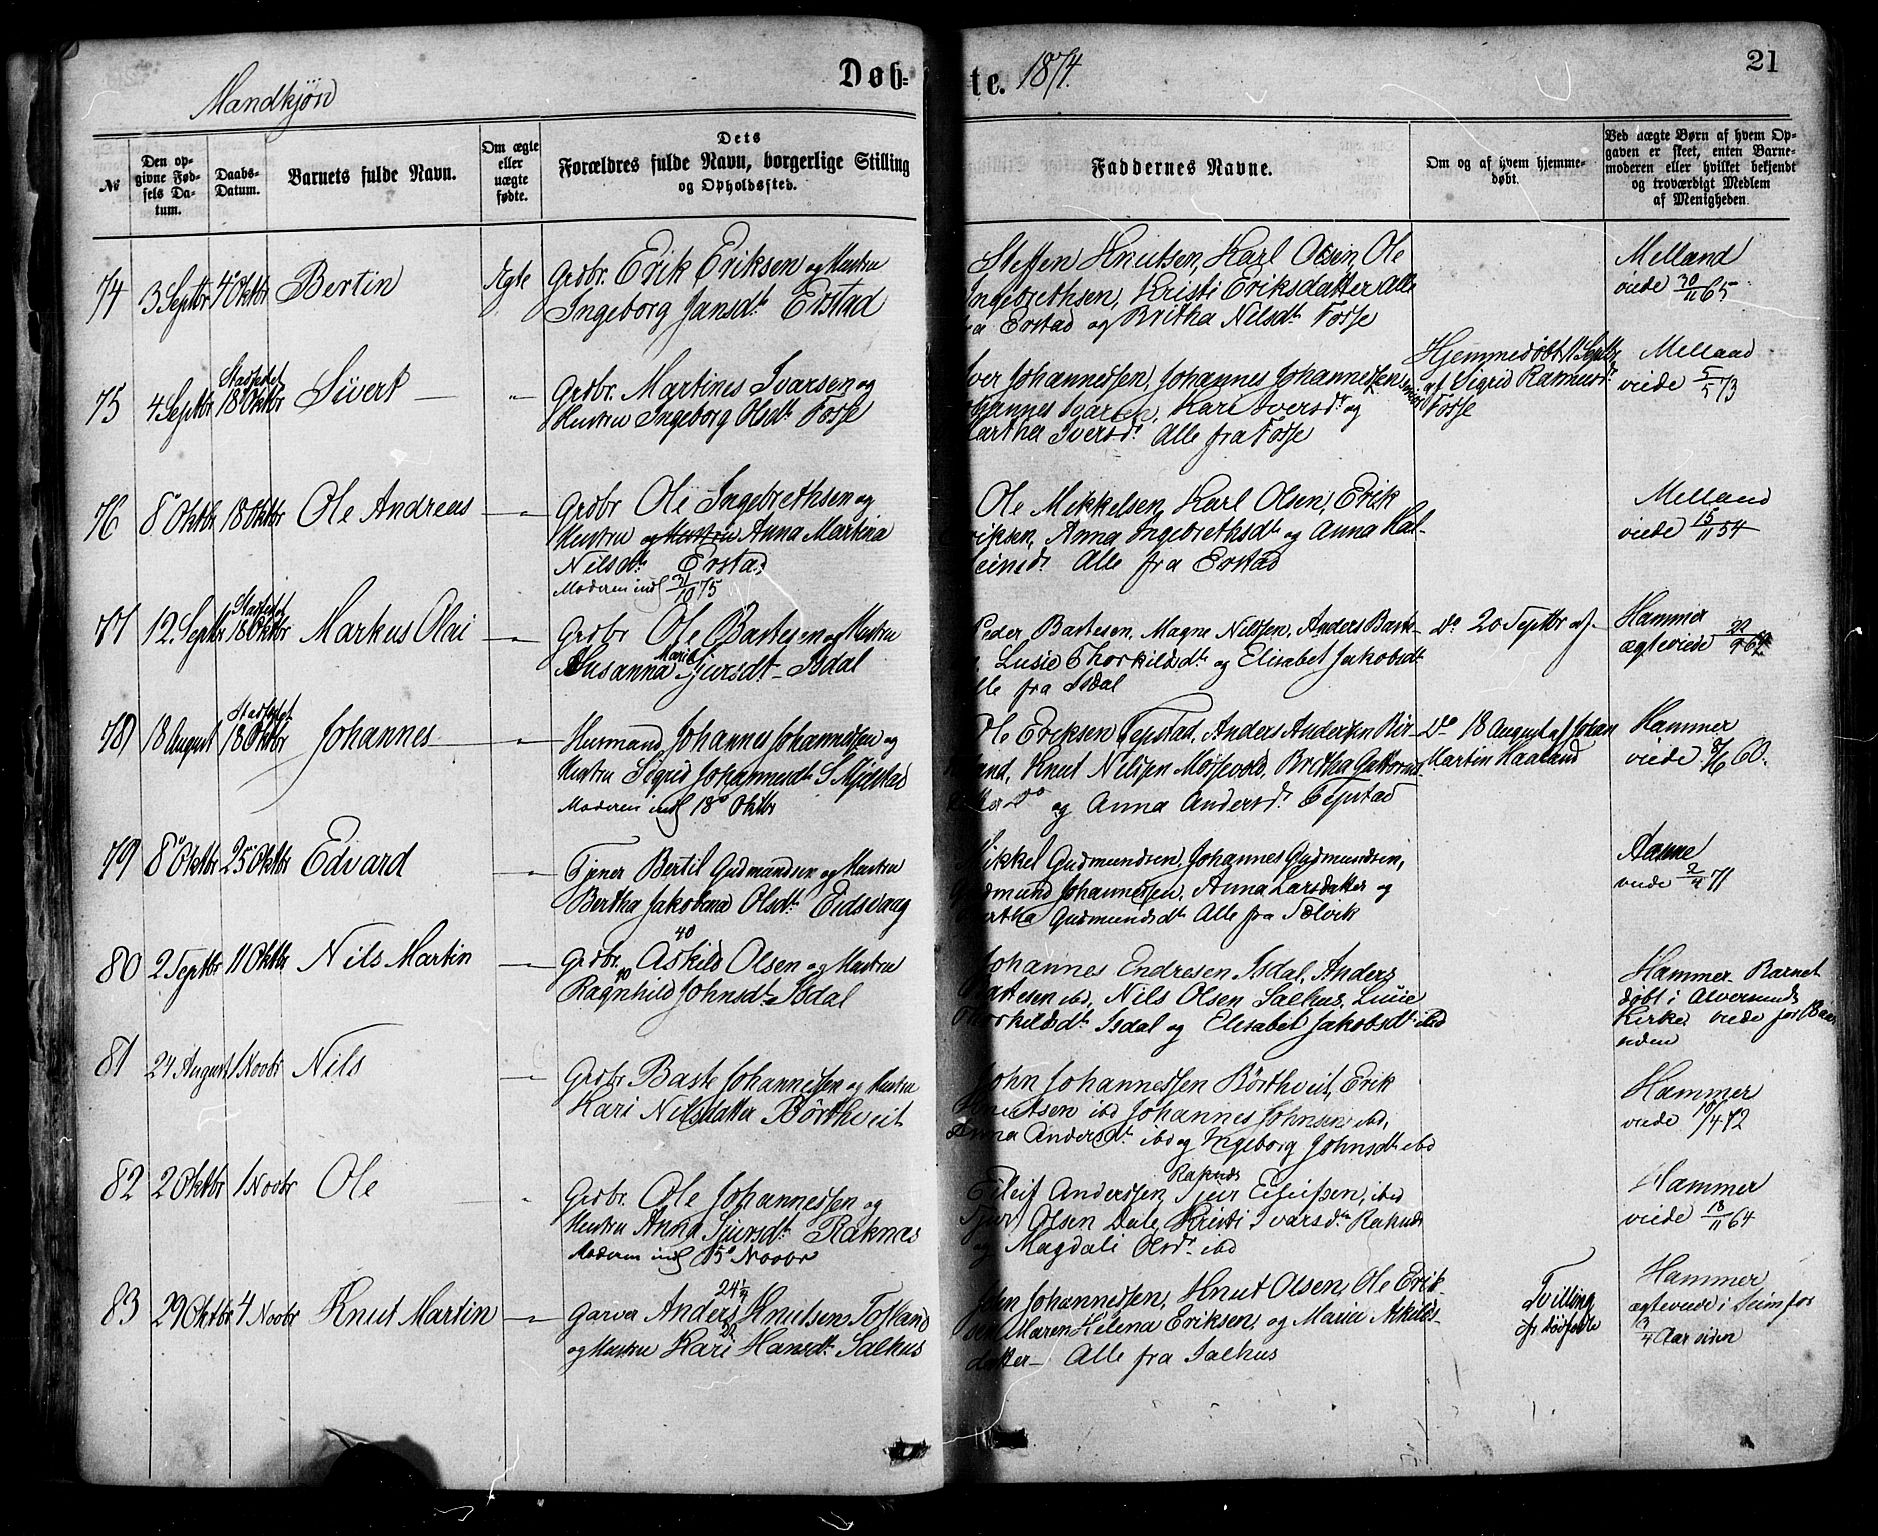 Mandkjön
Døb-
te. 1874.
21
№
Den op-
givne Fød-
sels Da-
tum.
Daabs-
Datum.
Barnets fulde Navn.
Om ægte
eller
uægte
fødte.
Dets
Forældres fulde Navn, borgerlige Stilling
og Opholdssted.
Faddernes Navne.
Om og af hvem hjemme-
døbt.
Ved uægte Børn af hvem Op-
gaven er skeet, enten Barne-
moderen eller hvilket bekjendt
og troværdigt Medlem
af Menigheden.
74 3 Septbr 4 Oktbr Bertin Ægte
Grdbr. Erik Eriksen og Hustru
Ingeborg Jansdt Erstad
Steffen Knutsen, Karl Olsen, Ole
Ingebrethsen, Kristi Eriksdatter Alle
fra Erstad og Britha Nilsdt Fosse
Melland
viede 30/11 65
75 4 Septbr Stadfestet
18 Oktbr Sivert — "
Grdbr. Martines Ivarsen og
Hustru Ingeborg Olsdt Fosse
Iver Johannessen, Johannes Johannessen,
Johannes Ivarsen, Kari Iversdt og
Martha Iversdt Alle fra Fosse
Hjemmedöbt 11 Septbr
af Sigrid Rasmusdt
Fosse
Melland
viede 5/5 73
76 8 Oktbr 18 Oktbr Ole Andreas — " —
Grdbr Ole Ingebrethsen og
Hustru og Hustru Anna Martina
Nilsdt Erstad
Moderen indl 31/10 75
Ole Mikkelsen, Karl Olsen, Erik
Eriksen, Anna Ingebrethsdt og Anna Hal-
steinsdt Alle fra Erstad
Melland
viede 15/11 54
77 12 Septbr Stadfestet
18 Oktbr Markus Olai — " —
Grdbr Ole Bastesen og Hustru
Susanna Marie Sjursdt Isdal
Peder Bastesen, Magne Nilssen, Anders Baste-
Lusie Thorkildsdt og Elisabet Jakobsdt
Alle fra Isdal
Do 20 Septbr af —
Hammer
ægteviede
78 18 August Stadfestet
18 Oktbr Johannes — " —
Husmand Johannes Johannessen og
Hustru Sigrid Johannesdt S Mjelstad
Moderen indl 18 Oktbr
Ole Eriksen Tepstad, Anders Anderssen Bir-
land, Knut Nilssen Mossevold, Britha Guttorms-
datter Do og Anna Andersdt Tepstad
Do 18 August af Johan
Martin Haaland
Hammer
viede 8/6 60.
79 8 Oktbr 25 Oktbr Edvard — " —
Tjener Bertil Gudmundsen og Hustru
Bertha Jakobena Olsdt Eidsvaag
Mikkel Gudmundsen, Johannes Gudmundsen,
Gudmund Johannessen, Anna Larsdatter og
Bertha Gudmundsdt Alle fra Tælvik
Aasane
viede 2/4 71
80 2 Septbr 11 Oktbr Nils Martin — " —
Grdbr. Askild Olsen og Hustru
40
40
Ragnhild Johnsdt Isdal
Johannes Endresen Isdal, Anders
Bastesen ibd, Nils Olsen Salhus, Lusie
Thorkildsdt Isdal og Elisabet Jakobsdt ibd
Hammer. Barnet
döbt i Alversunds
Kirke. viede for 18 Aar
siden
81 24 August 1 Novbr Nils — " —
Grdbr Baste Johannessen og Hustru
Kari Nilsdatter Börtheveit
John Johannessen Börtheveit, Erik
Knutsen ibd Johannes Johnsen ibd,
Anna Andersdt ibd og Ingeborg Johnsdt ibd
Hammer
viede 10/4 72
82 2 Oktbr 1 Novbr Ole — "
Grdbr. Ole Johannessen og
Hustru Anna Sjursdt Raknes
Moderen indl 15 Novbr
Eileif Anderssen, Raknes Sjur Eileifsen, ibd
Sjur Olsen Dale, Kristi Ivarsdt Raknes
og Magdali Olsdt ibd
Hammer
viede 18/11 64
83 29 Oktbr 4 Novbr Knut Martin — " —
Garver Anders Knutsen Tofland
og Hustru Kari Hansdt Salhus
John Johannessen, Knut Olsen, Ole Erik-
sen, Maren Helena Eriksen, og Maria Askilds-
datter — Alle fra Salhus
Tvilling
af dödfödte
Hammer
ægteviede i Seim for
13/4 Aar siden